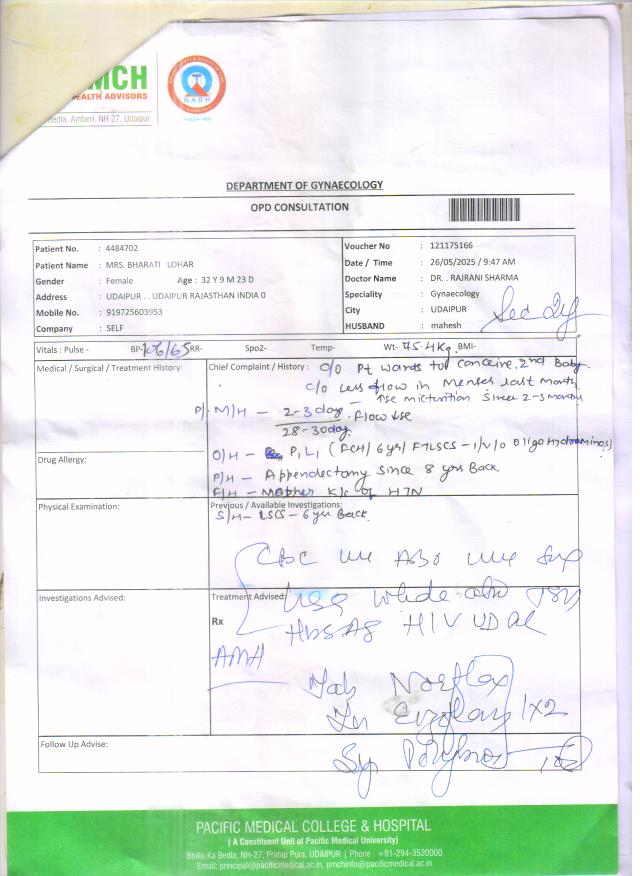 MCH
HEALTH ADVISORS
NABH
Bedla, Amberi, NH 27, Udaipur
DEPARTMENT OF GYNAECOLOGY
OPD CONSULTATION
Patient No. : 4484702
Patient Name : MRS. BHARATI LOHAR
Gender : Female Age : 32 Y 9 M 23 D
Address : UDAIPUR . . UDAIPUR RAJASTHAN INDIA 0
Mobile No. : 919725603953
Company : SELF
Voucher No : 121175166
Date / Time : 26/05/2025 / 9:47 AM
Doctor Name : DR. . RAJRANI SHARMA
Speciality : Gynaecology
City : UDAIPUR
HUSBAND : mahesh
Vitals : Pulse - BP- 106/65 RR- Spo2- Temp- Wt- 75.4Kg BMI-
Medical / Surgical / Treatment History:
Chief Complaint / History : Pt wants to conceive 2nd Baby
c/o Less flow in Menses last month
micturition Since 2-3 months
P/ M/H - 2-3 day flow
28-30 day
O/H - P1L1 (FCH/ 6 yr/ FTLSCS - i/v/o Oligohydraminos)
P/H - Appendectomy since 8 yrs Back
F/H - Mother K/c of HTN
Drug Allergy:
Physical Examination:
Previous / Available Investigations:
S/H - LSCS - 6 yr Back
CBC ABO
Investigations Advised:
Treatment Advised:
Rx
TSH
HBSAG HIV VDRL
AMH
Tab Norflox
1X2
Syp
Follow Up Advise:
PACIFIC MEDICAL COLLEGE & HOSPITAL
( A Constituent Unit of Pacific Medical University)
Bhillo Ka Bedla, NH-27, Pratap Pura, UDAIPUR | Phone : +91-294-3520000
Email: principal@pacificmedical.ac.in, pmchinfo@pacificmedical.ac.in